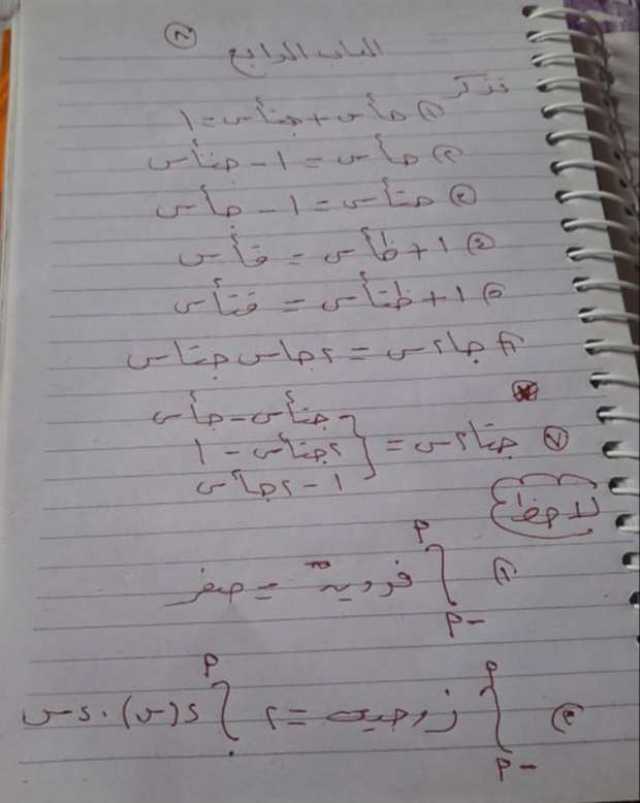 ٢
الباب الرابع
تذكر
① جا²س + جتا²س = ١
② جا²س = ١ - جتا²س
③ جتا²س = ١ - جا²س
④ ١ + ظا²س = قا²س
⑤ ١ + ظتا²س = قتا²س
⑥ جا٢س = ٢جاس جتاس
⑦ جتا٢س = { جتا²س - جا²س
٢جتا²س - ١
١ - ٢جا²س
لاحظ
① ∫ فردية = صفر
② ∫ زوجية = ٢ ∫ د(س) . دس